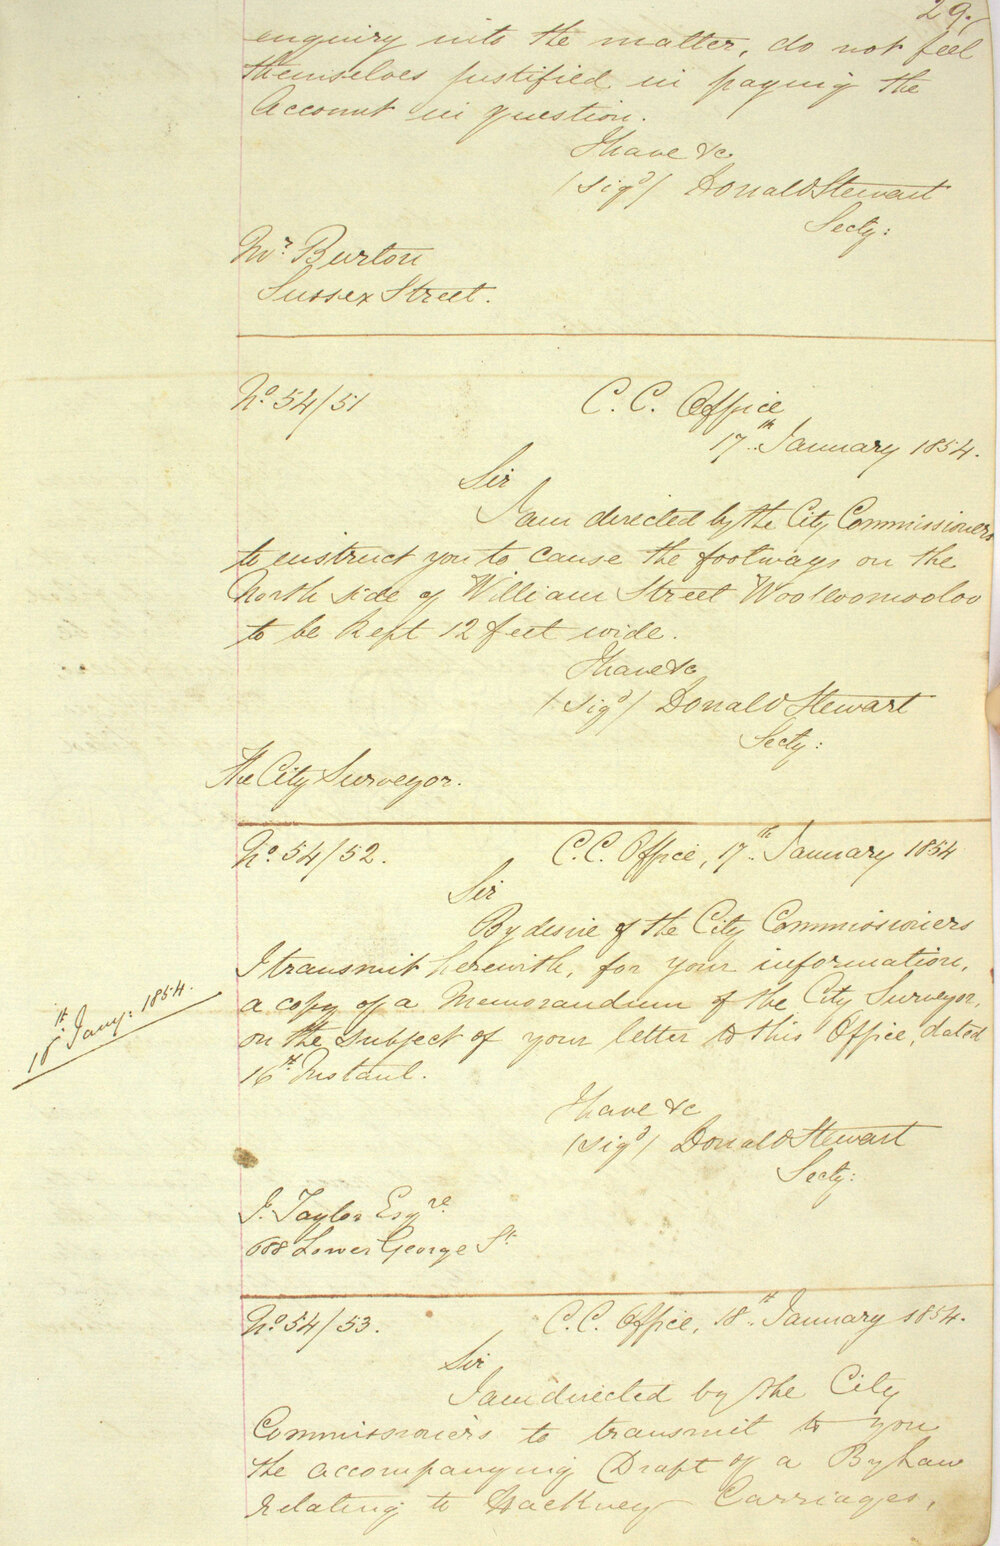 29.
enquiry into the matter, do not feel
themselves justified in paying the
Account in question.
I have &c
(sigd) Donald Stewart
Secty:
Mr. Burton
Sussex Street.
No. 54/51
C. C. Office
17th January 1854.
Sir
I am directed by the City Commissioners
to instruct you to cause the footways on the
North side of William Street Woolloomooloo
to be kept 12 feet wide.
I have &c
(sigd) Donald Stewart
Secty:
The City Surveyor.
No. 54/52.
C. C. Office, 17th January 1854
Sir
By desire of the City Commissioners
I transmit herewith, for your information,
a copy of a Memorandum of the City Surveyor,
on the subject of your letter to this Office, dated
16th Instant.
18th Jany: 1854.
I have &c
(sigd) Donald Stewart
Secty:
J. Taylor Esqre.
688 Lower George St
No. 54/53.
C. C. Office, 18th January 1854.
Sir
I am directed by the City
Commissioners to transmit to you
the accompanying Draft of a By Law
relating to Hackney Carriages,